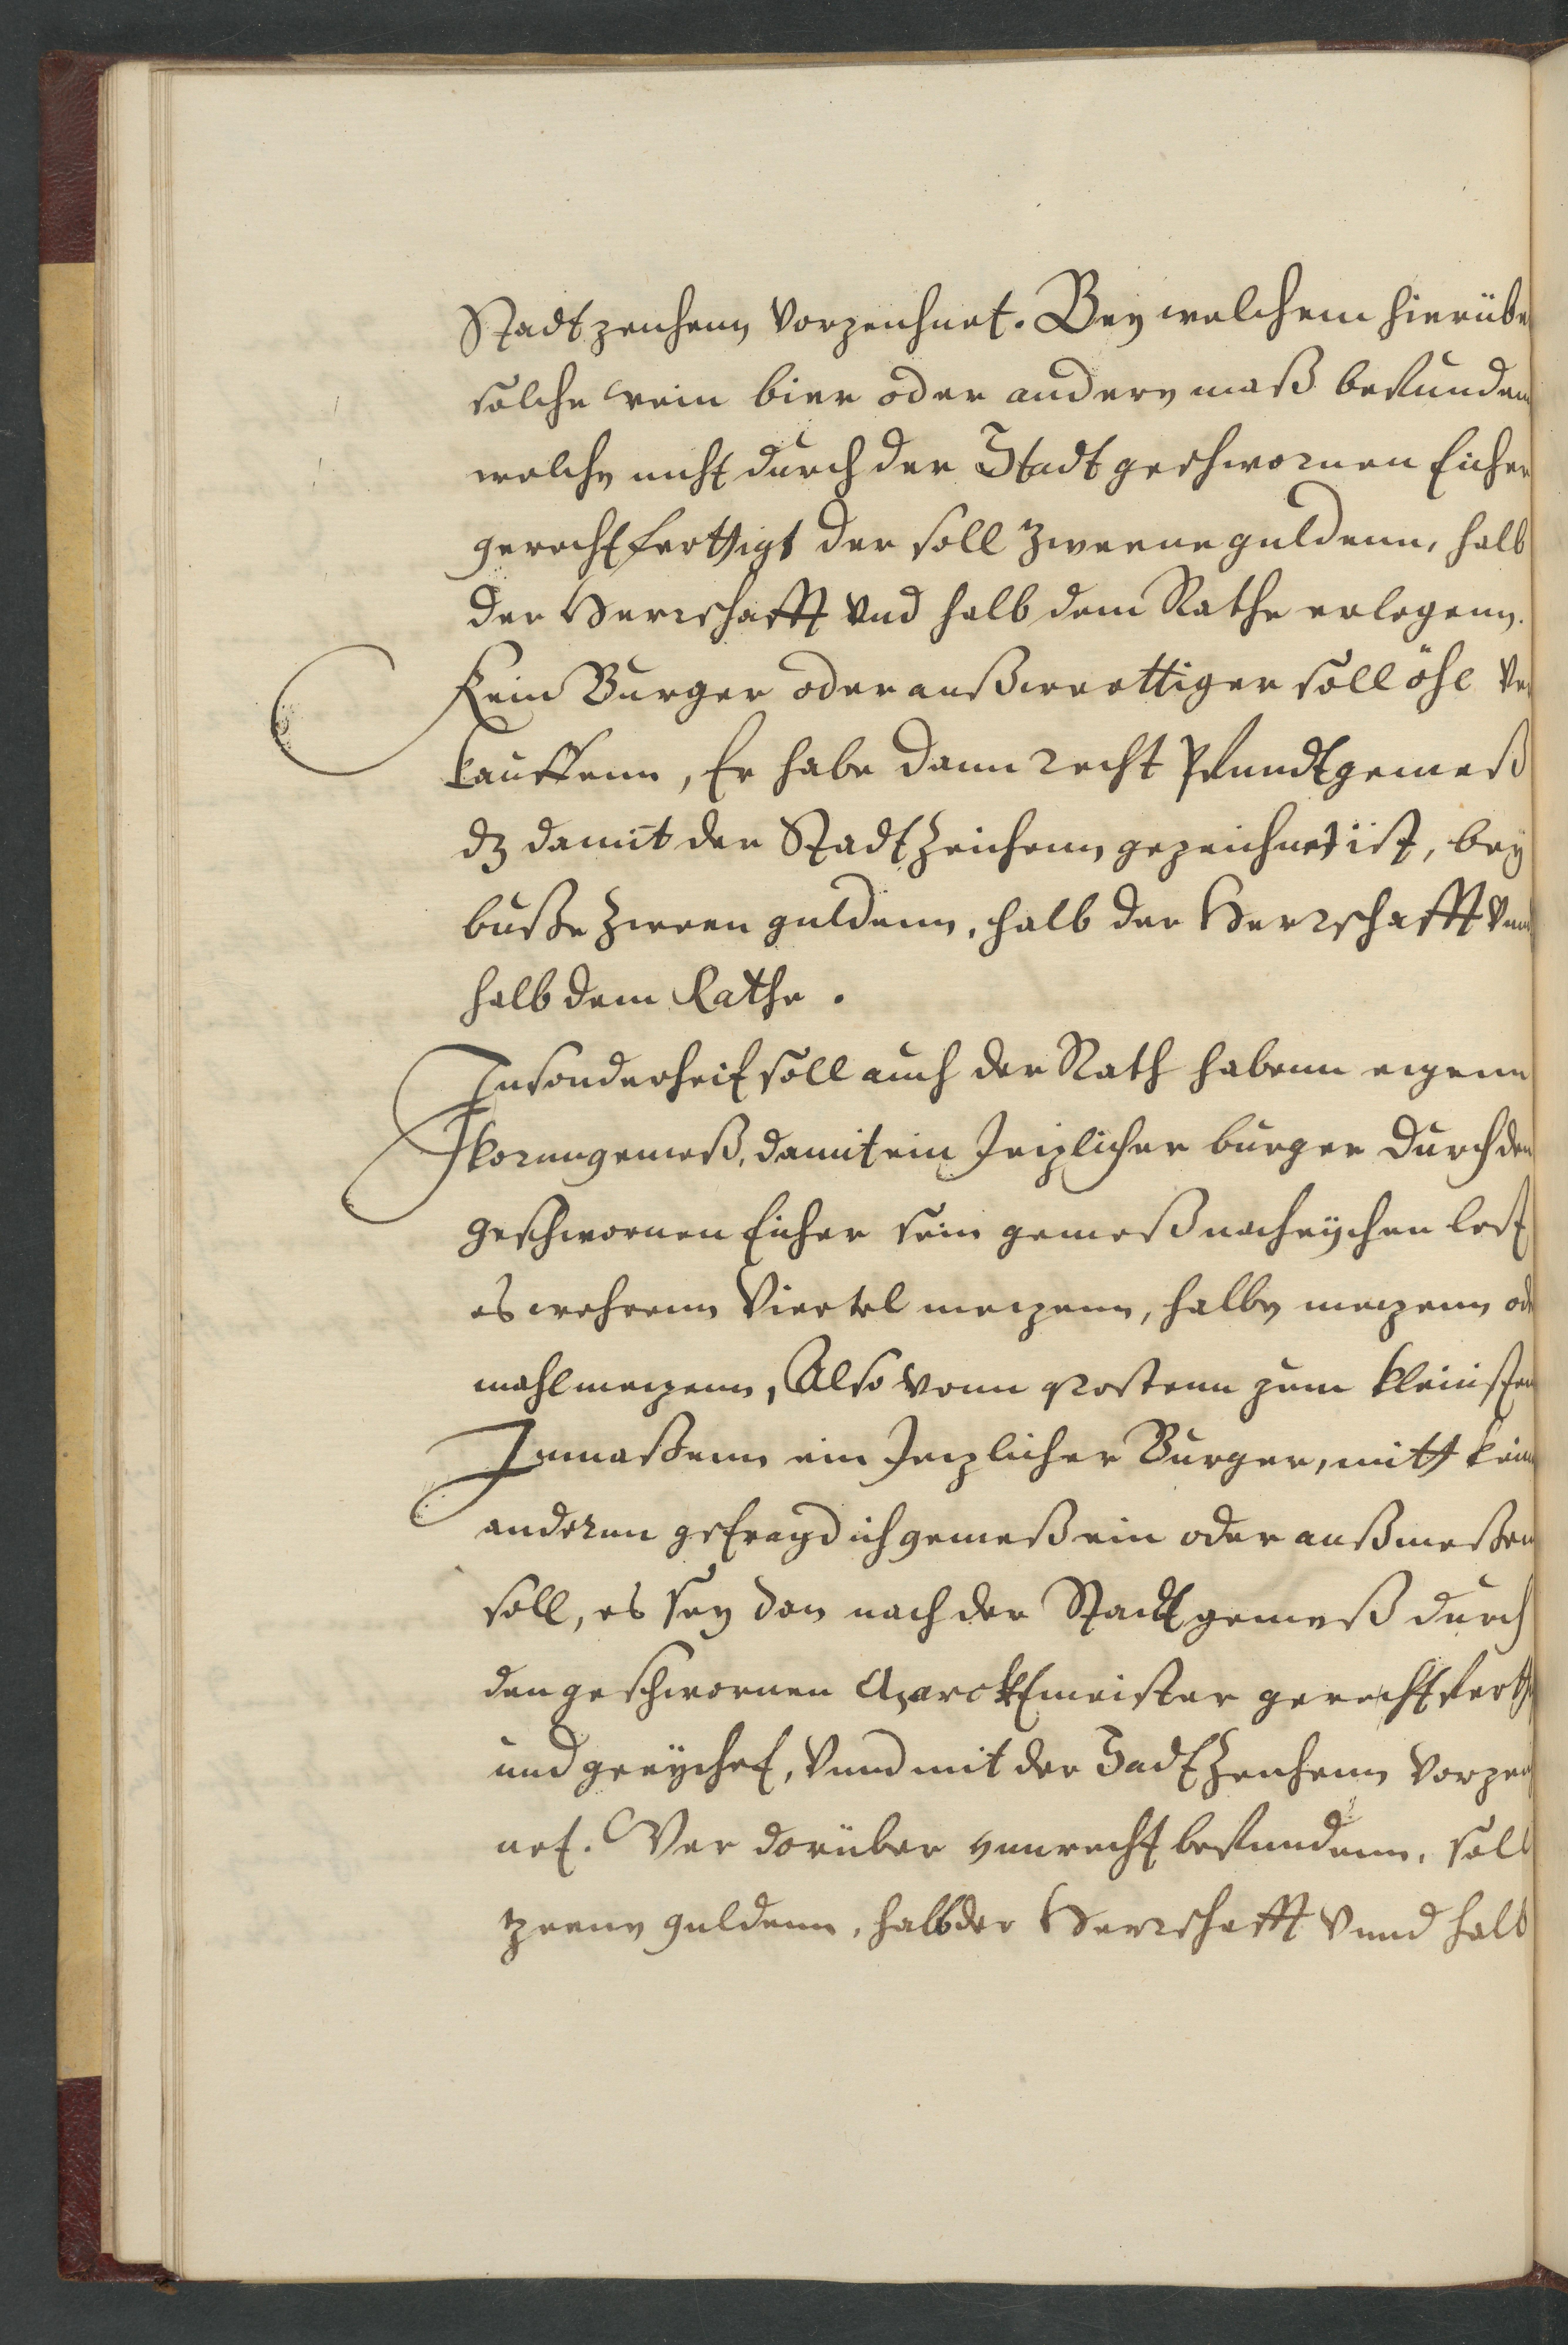 Stadtzeichenn vorzeichnet. Bey welchem hierübe
solche wein bier oder andere maß befunden
welche nicht durch der Stadt geschwornen Eicher
gerechtferttigt der soll zweene guldenn, halb
der Herrschafft vnd halb dem Rathe erlegenn.
Kein Burger oder außwerttiger soll öhl ver
kauffenn, Er habe dann recht Pfundtgemeß
dz damit der Stadt Zeichenn gezeichnet ist, bey
buße zween guldenn, halb der Herrschafft vnnd
halb dem Rathe.
Insonderheit soll auch der Rath habenn eigenn
korngemeß, damit ein Jeizlicher burger durch den
geschwornen Eicher sein gemeß nacheychen lest
es wehrenn Viertel meezenn, halbe meezenn ode
mahlmeezenn, Also vonn grostenn zum kleinisten
Inmaßenn ein Jeezlicher Burger, mitt kein
anderun getraydich gemeß ein oder außmeßen
soll, es sey dan nach der Stadt gemeß durch
den geschwornen Marcktmeister gerechtfertt
und geeychet, Vnnd mit der Stadt Zeichenn vorzei
net. Wer dorüber vnrecht befundenn, soll
tzeene guldenn, halb der Herrschafft Vnnd halb